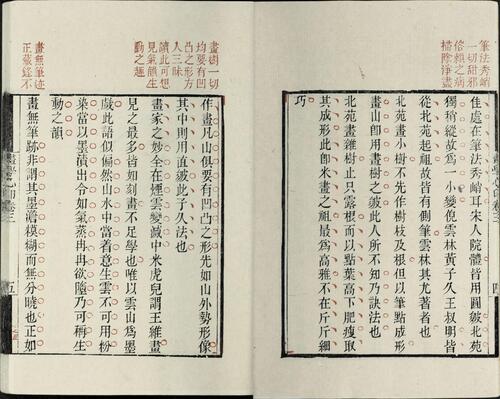 筆法秀峭
一切甜邪
俗賴之病
掃除淨盡
佳處在筆法秀峭耳宋人院體皆用圓皴北苑
獨稍縱故爲一小變倪雲林黃子久王叔明皆
從北苑起祖故皆有側筆雲林其尤著者也
北苑畫小樹不先作樹枝及根但以筆點成形
畫山卽用畫樹之皴此人所不知乃訣法也
北苑畫雜樹止只露根而以點葉高下肥瘦取
其成形此卽米畫之祖最爲高雅不在斤斤細
巧
畫樹一切
均要有凹
凸之形方
人三昧
讀此可想
見氣韻生
動之趣
畫無筆迹
正藏鋒不
作畫凡山俱要有凹凸之形先如山外勢形像
其中則用直皴此子久法也
畫家之妙全在煙雲變滅中米虎兒謂王維畫
見之最多皆如刻畫不足學也唯以雲山爲墨
戲此語似偏然山水中當着意生雲不可用粉
染當以墨漬出令如氣蒸冉冉欲墮乃可稱生
動之韻
畫無筆跡非謂其墨澹模糊而無分曉也正如
畫學心印卷三
五